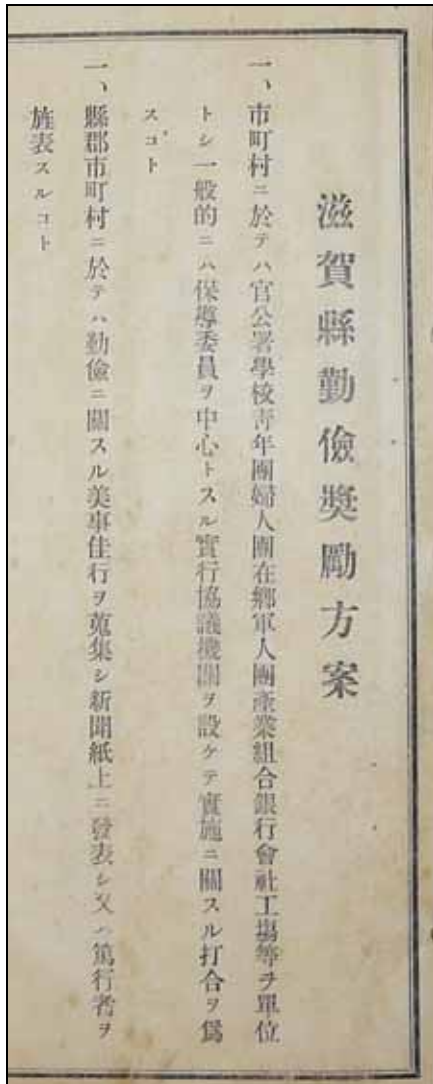 滋賀縣勤儉奬勵方案
一、市町村ニ於テハ官公署學校靑年團婦人團在鄕軍人團產業組合銀行會社工場等ヲ單位
トシ一般的ニハ保導委員ヲ中心トスル實行協議機關ヲ設ケテ實施ニ關スル打合ヲ爲
スコト
一、縣郡市町村ニ於テハ勤儉ニ關スル美事佳行ヲ蒐集シ新聞紙上ニ發表シ又ハ篤行者ヲ
旌表スルコト